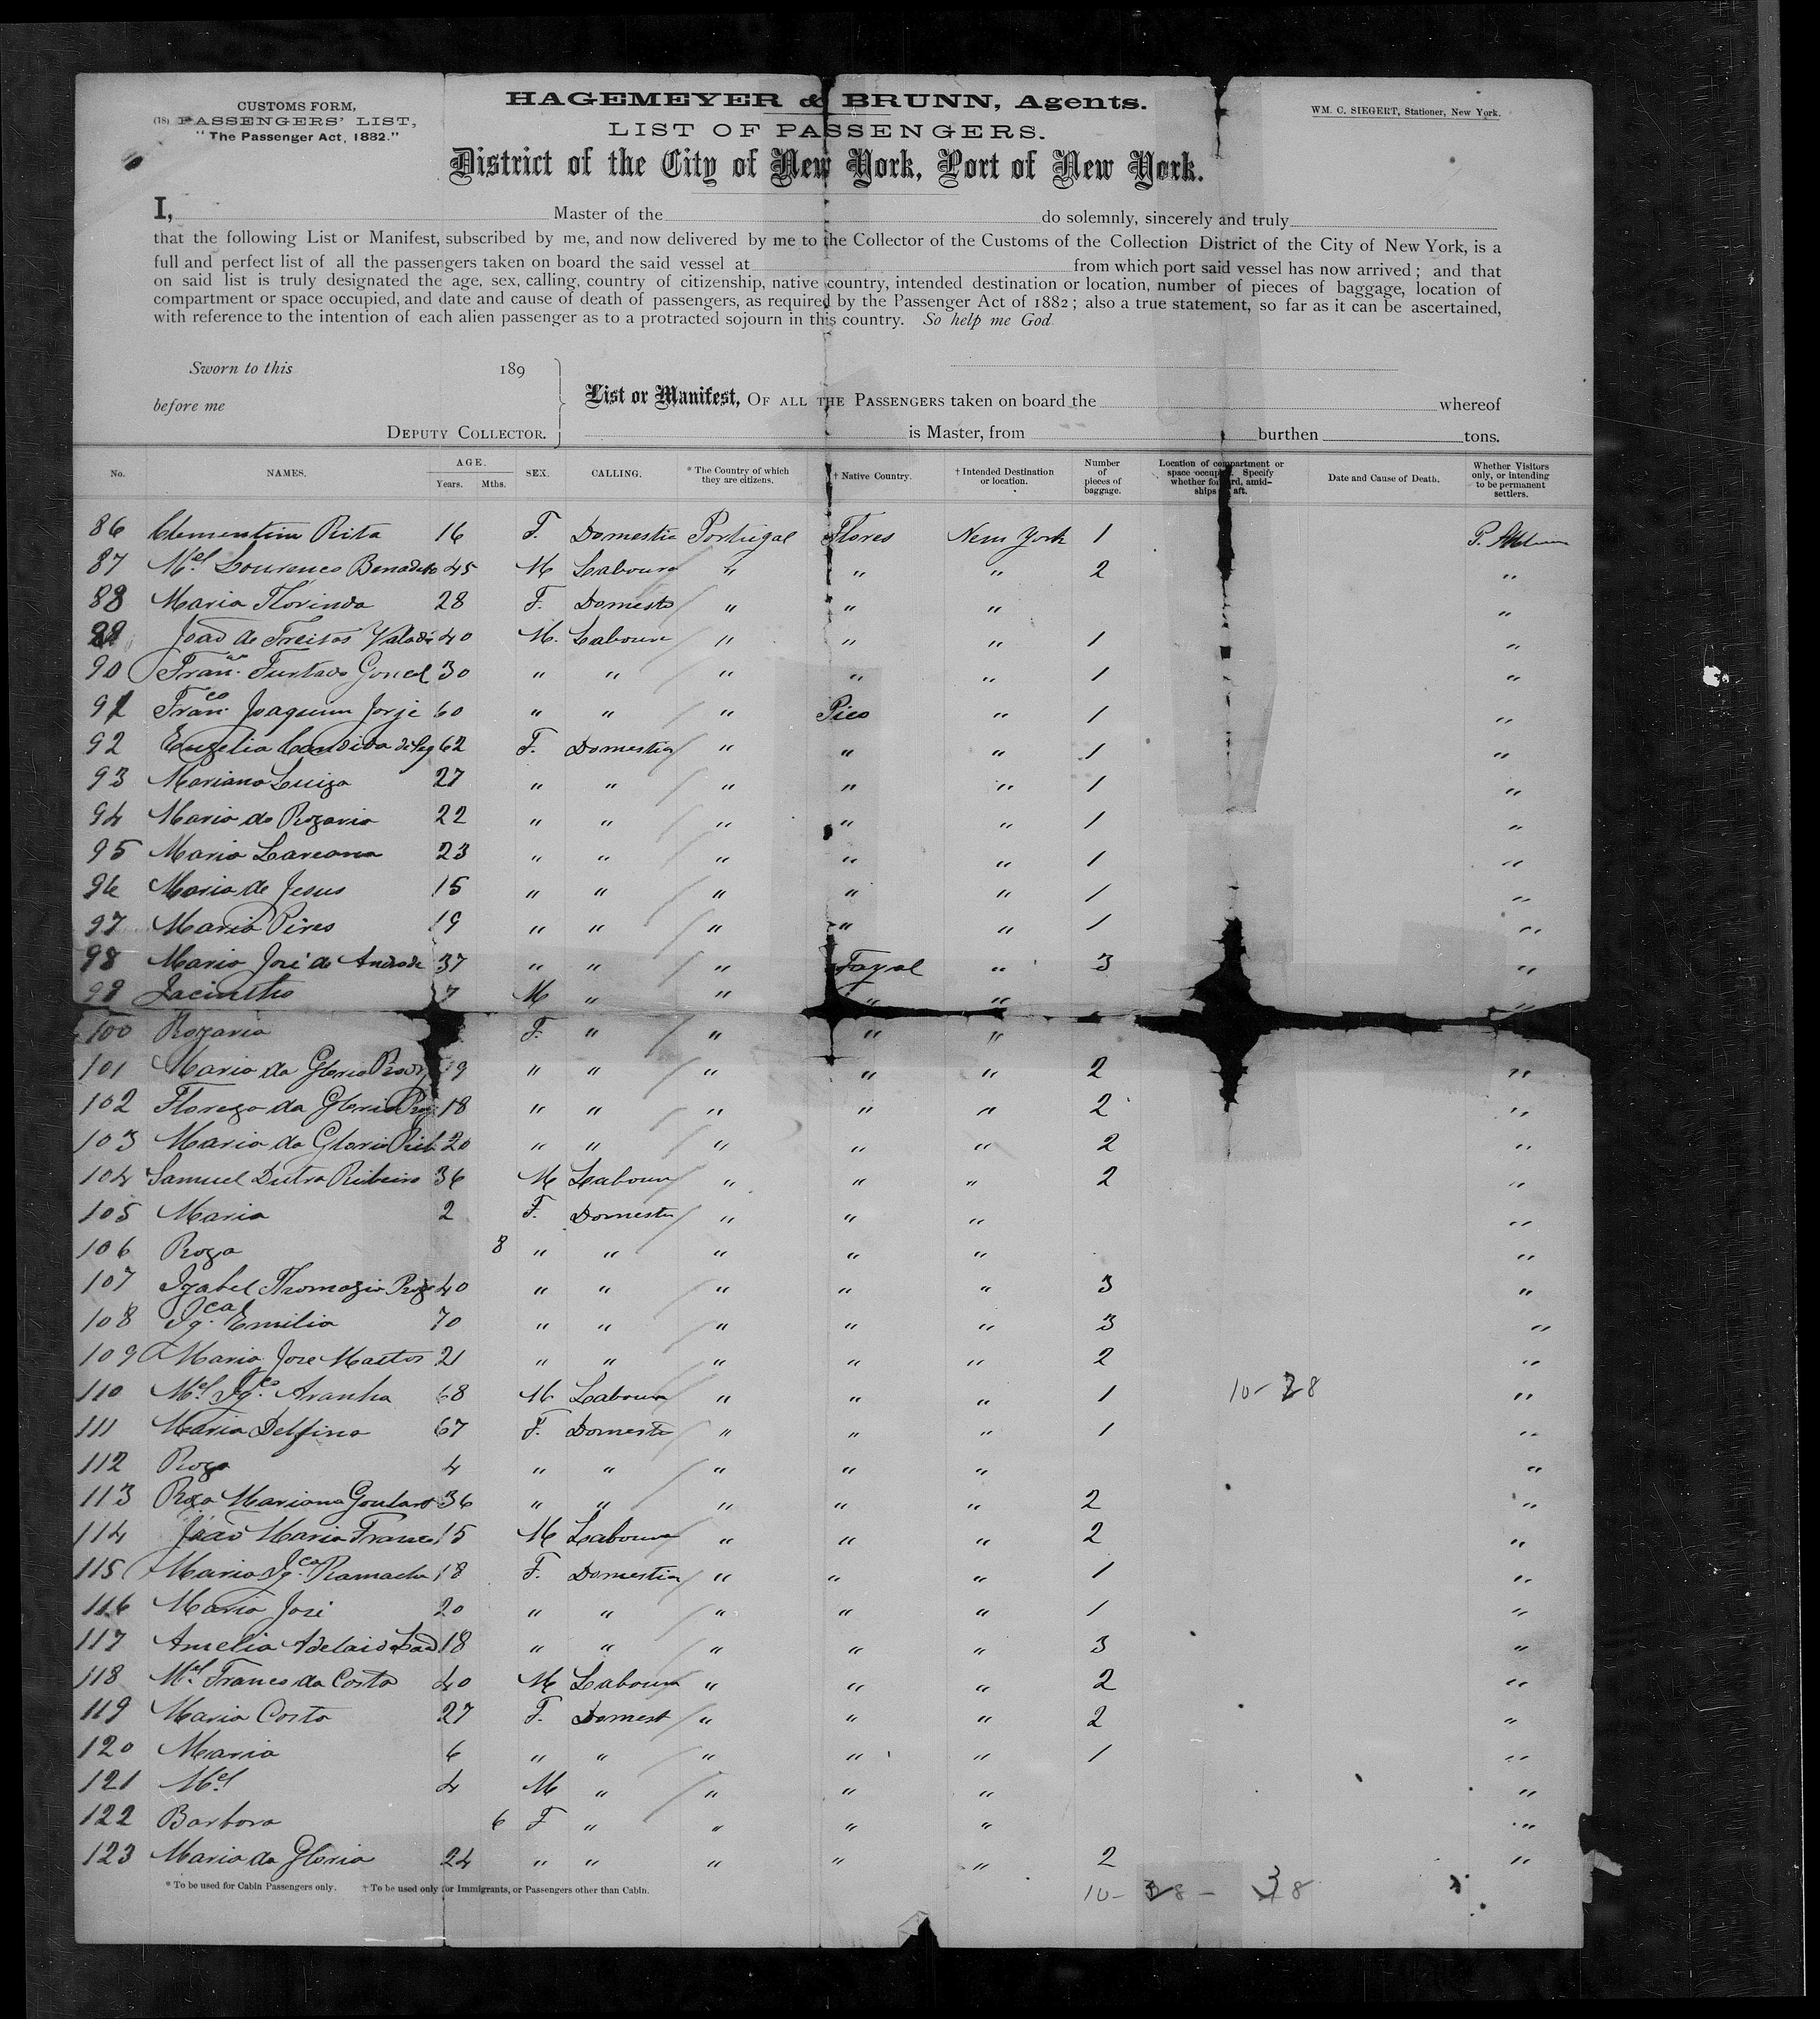 CUSTOMS FORM,
(18) PASSENGERS' LIST,
"The Passenger Act, 1882."
HAGEMEYER & BRUNN, Agents.
LIST OF PASSENGERS.
District of the City of New York, Port of New York.
WM. C. SIEGERT, Stationer, New York.
I, Master of the do solemnly, sincerely and truly
that the following List or Manifest, subscribed by me, and now delivered by me to the Collector of the Customs of the Collection District of the City of New York, is a
full and perfect list of all the passengers taken on board the said vessel at from which port said vessel has now arrived; and that
on said list is truly designated the age, sex, calling, country of citizenship, native country, intended destination or location, number of pieces of baggage, location of
compartment or space occupied, and date and cause of death of passengers, as required by the Passenger Act of 1882; also a true statement, so far as it can be ascertained,
with reference to the intention of each alien passenger as to a protracted sojourn in this country. So help me God.
Sworn to this 189
before me
DEPUTY COLLECTOR.
List or Manifest, OF ALL THE PASSENGERS taken on board the whereof
is Master, from burthen tons.
No. NAMES. AGE. Years. Mths. SEX. CALLING. * The Country of which they are citizens. † Native Country. † Intended Destination or location. Number of pieces of baggage. Location of compartment or space occupied. Specify whether forward, amidships or aft. Date and Cause of Death. Whether Visitors only, or intending to be permanent settlers.
86 Clementina Rita 16 F. Domestic Portugal Flores New York 1
87 Mel Lourenco Benadito 45 M Labourer " " " 2 "
88 Maria Florinda 28 F. Domestic " " " "
89 João de Freitas 40 M. Labourer " " " 1 "
90 Furtado 30 " " " " " 1 "
91 Franco Joaquim Jorje 60 " " " Pico " 1 "
92 Candida 62 F. Domestic " " " 1 "
93 Mariana Luiza 27 " " " " " 1 "
94 Maria do Rozario 22 " " " " " 1 "
95 Maria 23 " " " " " 1 "
96 Maria de Jesus 15 " " " " " 1 "
97 Maria Pires 19 " " " " " 1 "
98 Maria José de Andrade 37 " " " Fayal " 3 "
99 Jacintho 7 M " " " " "
100 Rozaria F. " " " " "
101 Maria da Gloria 9 " " " " " 2 "
102 da Gloria 18 " " " " " 2 "
103 Maria da Gloria 20 " " " " " 2 "
104 Samuel Dutra Ribeiro 36 M Labourer " " " 2 "
105 Maria 2 F. Domestic " " " "
106 Roza 8 " " " " " "
107 Izabel Thomazia 40 " " " " " 3 "
108 Igca Emilia 70 " " " " " 3 "
109 Maria José Mattos 21 " " " " " 2 "
110 Mel Igco Aranha 68 M Labourer " " " 1 10-28 "
111 Maria Delfina 67 F. Domestic " " " 1 "
112 Roza 4 " " " " " "
113 Roza Mariana Goulart 36 " " " " " 2 "
114 João Maria 15 M Labourer " " " 2 "
115 Maria Igca 18 F. Domestic " " " 1 "
116 Maria José 20 " " " " " 1 "
117 Amelia Adelaide 18 " " " " " 3 "
118 Mel da Costa 40 M Labourer " " " 2 "
119 Maria Costa 27 F. Domest " " " 2 "
120 Maria 6 " " " " " 1 "
121 Mel 4 M " " " " "
122 Barbora 6 F " " " " "
123 Maria da Gloria 24 " " " " " 2 "
* To be used for Cabin Passengers only. † To be used only for Immigrants, or Passengers other than Cabin.